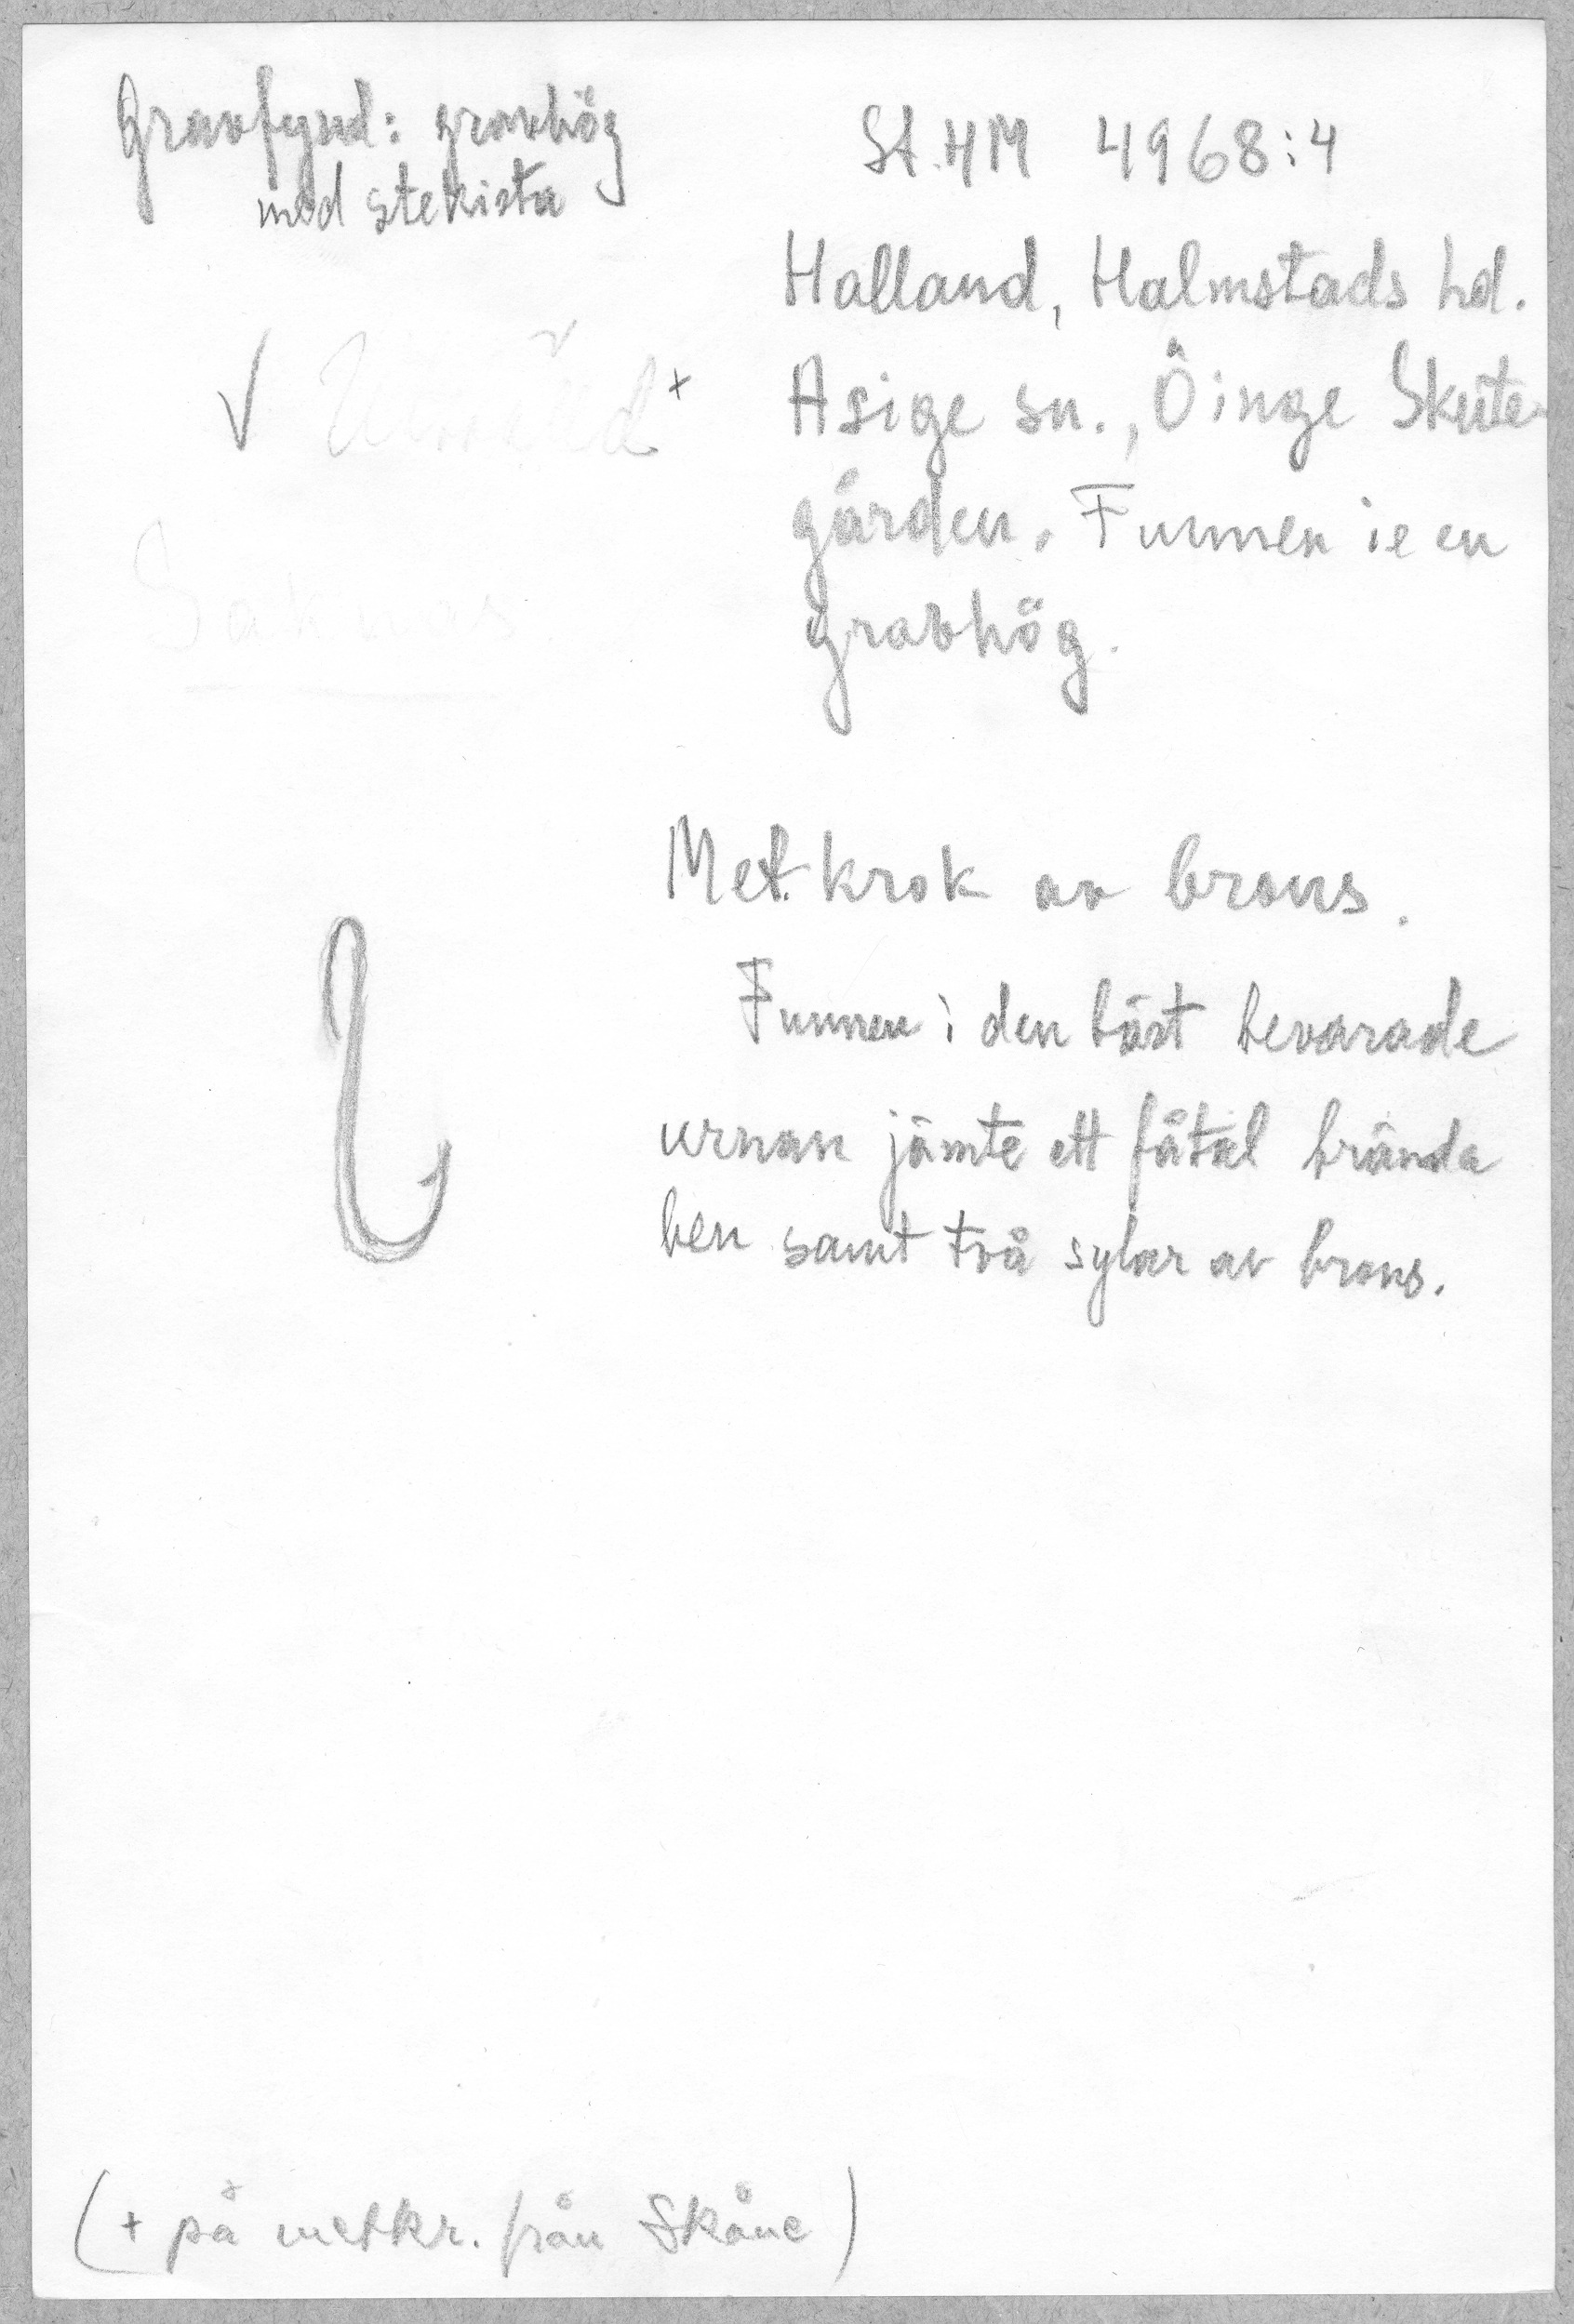 Gravfynd: gravhög
med stekista
St. HM 4968:4
Halland, Halmstads hd.
Asige sn., Öinge Skute-
gården. Funnen ie en
gravhög.
√ +
Saknas
Met.krok av brons.
Funnen i den bäst bevarade
urnan jämte ett fåtal brända
ben samt två sylar av brons.
(+ på metkr. från Skåne)